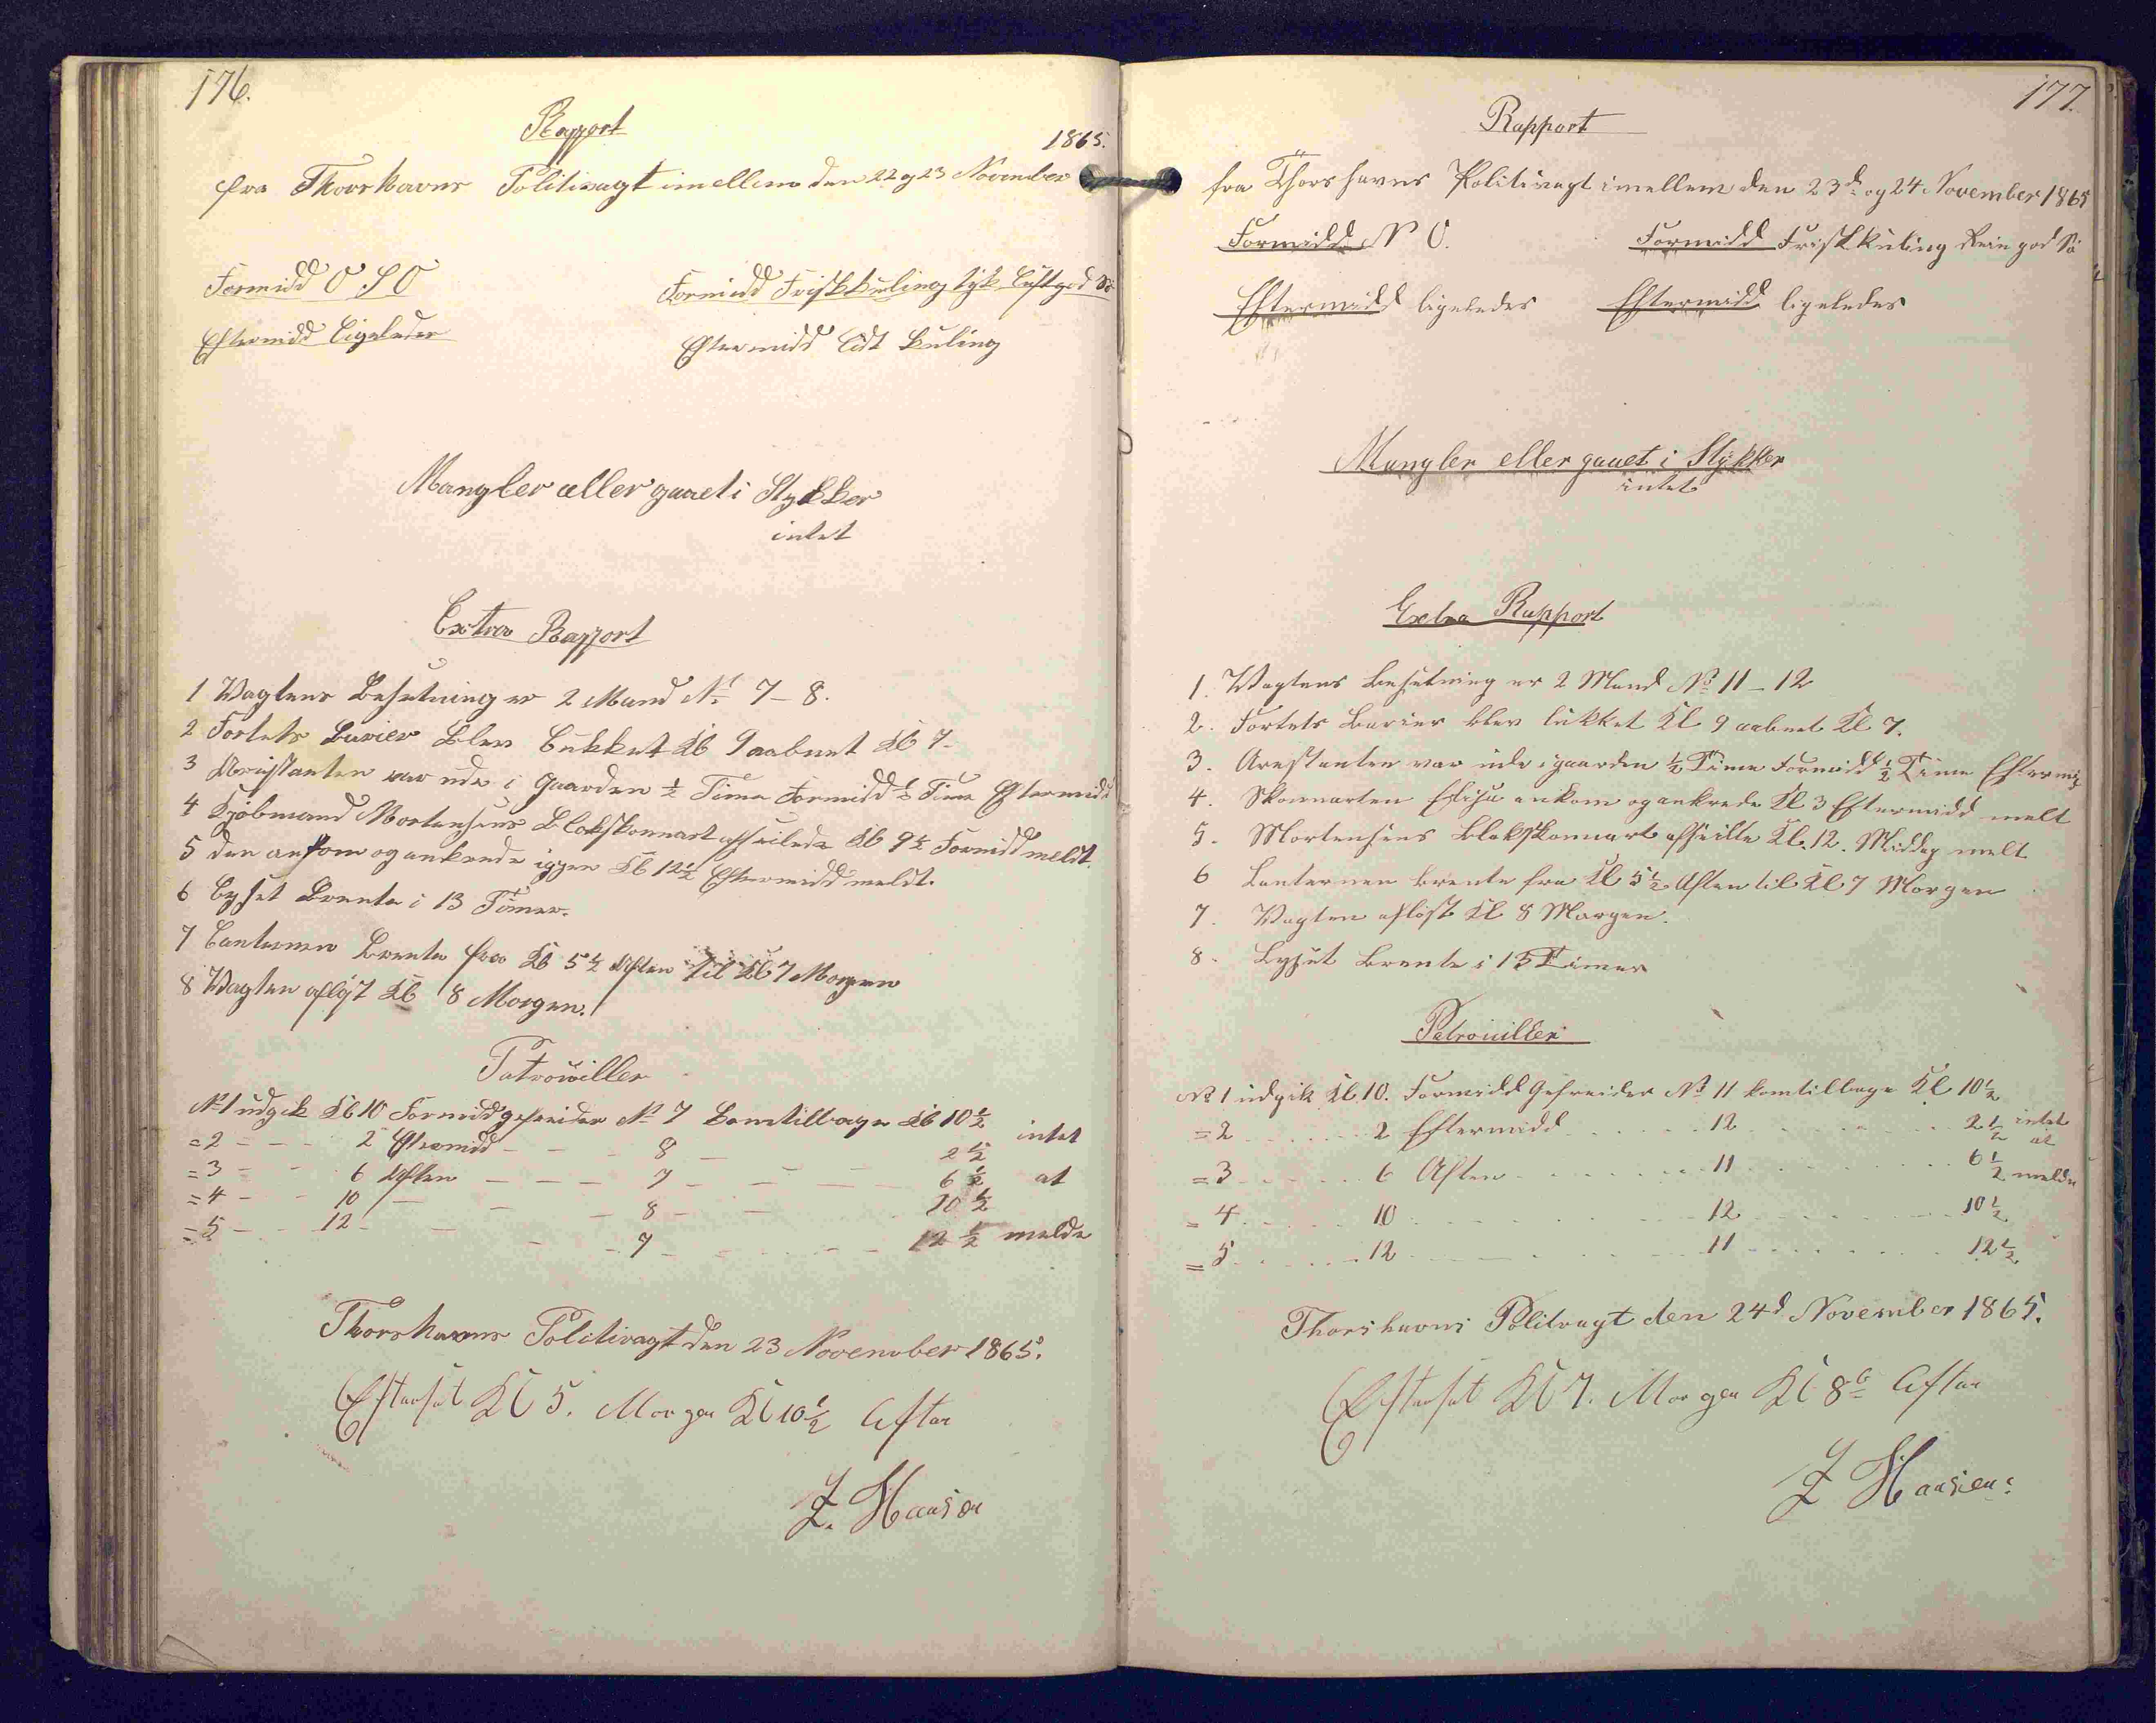 176.
Rapport
1865.
fra Thorshavns Politivagt imellem den 22 og 23 November
Formidd O S O
Formidd Friskkuling tyk Luft god Sö
Eftermidd ligeledes
Eftermidd lidt Kuling
Mangler eller gaaet i Stykker
intet
Extra Rapport
1 Vagtens Besetning er 2 Mand No 7-8.
2 Fortets Barier blev lukket Kl 9 aabnet Kl 7-
3 Arestanten var ude i Gaarden ½ Time Formidd ½ Time Eftermidd
4 Kjöbmand Mortensens Blokskonnart afseilede Kl 9½ Formidd meldt.
5 den ankom og ankrede iggen Kl 12½ Eftermidd meldt.
6 Lyset Brente i 13 Timer.
7 Lanternen Brente fra Kl 5½ Aften til Kl 7 Morgen
8 Vagten aflöst Kl 8 Morgen.
Patrouiller
No 1 udgik Kl 10 Formidd gefreider No 7 komtilbage Kl 10½ intet
=2 - - - 2 Eftermidd - - - 8 - 2½
=3 - - 6 Aften - - - 7 - - - 6½ at
=4 - - 10 - - - 8 - - 10½
=5 - - 12 - - - 7 - - - 12½ melde
Thorshavns Politivagt den 23 November 1865.
Efterset Kl 5. Morgen Kl 10½ Aften
Z. Hansen
177.
Rapport
fra Thorshavns Politivagt imellem den 23d og 24 November 1865
Formidd N O.
Formidd Friskkuling Rein god Sö
Eftermidd ligeledes
Eftermidd ligeledes
Mangler eller gauet i Stykker
intet
Extra Rapport
1. Vagtens Besetning er 2 Mand No 11-12
2. Fortets Barier blev lukket Kl 9 aabnet Kl 7.
3. Arestanten var ude i gaarden ½ Time Formidd ½ Time Eftermid
4. Skonnarten ankom og ankrede Kl 3 Eftermidd melt
5. Mortensens Blokskonnart afseilte Kl. 12. Middag melt
6 Lanternen brente fra Kl 5½ Aften til Kl 7 Morgen
7. Vagten aflöst Kl 8 Morgen.
8. Lyset Brente i 13 Timer
Patrouiller
No 1 udgik Kl 10. Formidd Gefreider No 11 komtilbage Kl 10½
=2 . . . . 2 Eftermidd . . . . 12 . . . . 2½ intet at
=3 . . . . 6 Aften . . . . 11 . . . . 6½ melde
=4 . . . . 10 . . . . 12 . . . . 10½
=5 . . . . 12 . . . . 11 . . . . 12½
Thorshavns Politvagt den 24d November 1865.
Efterset Kl 7. Morgen Kl 8½ Aften
Z Hansen: